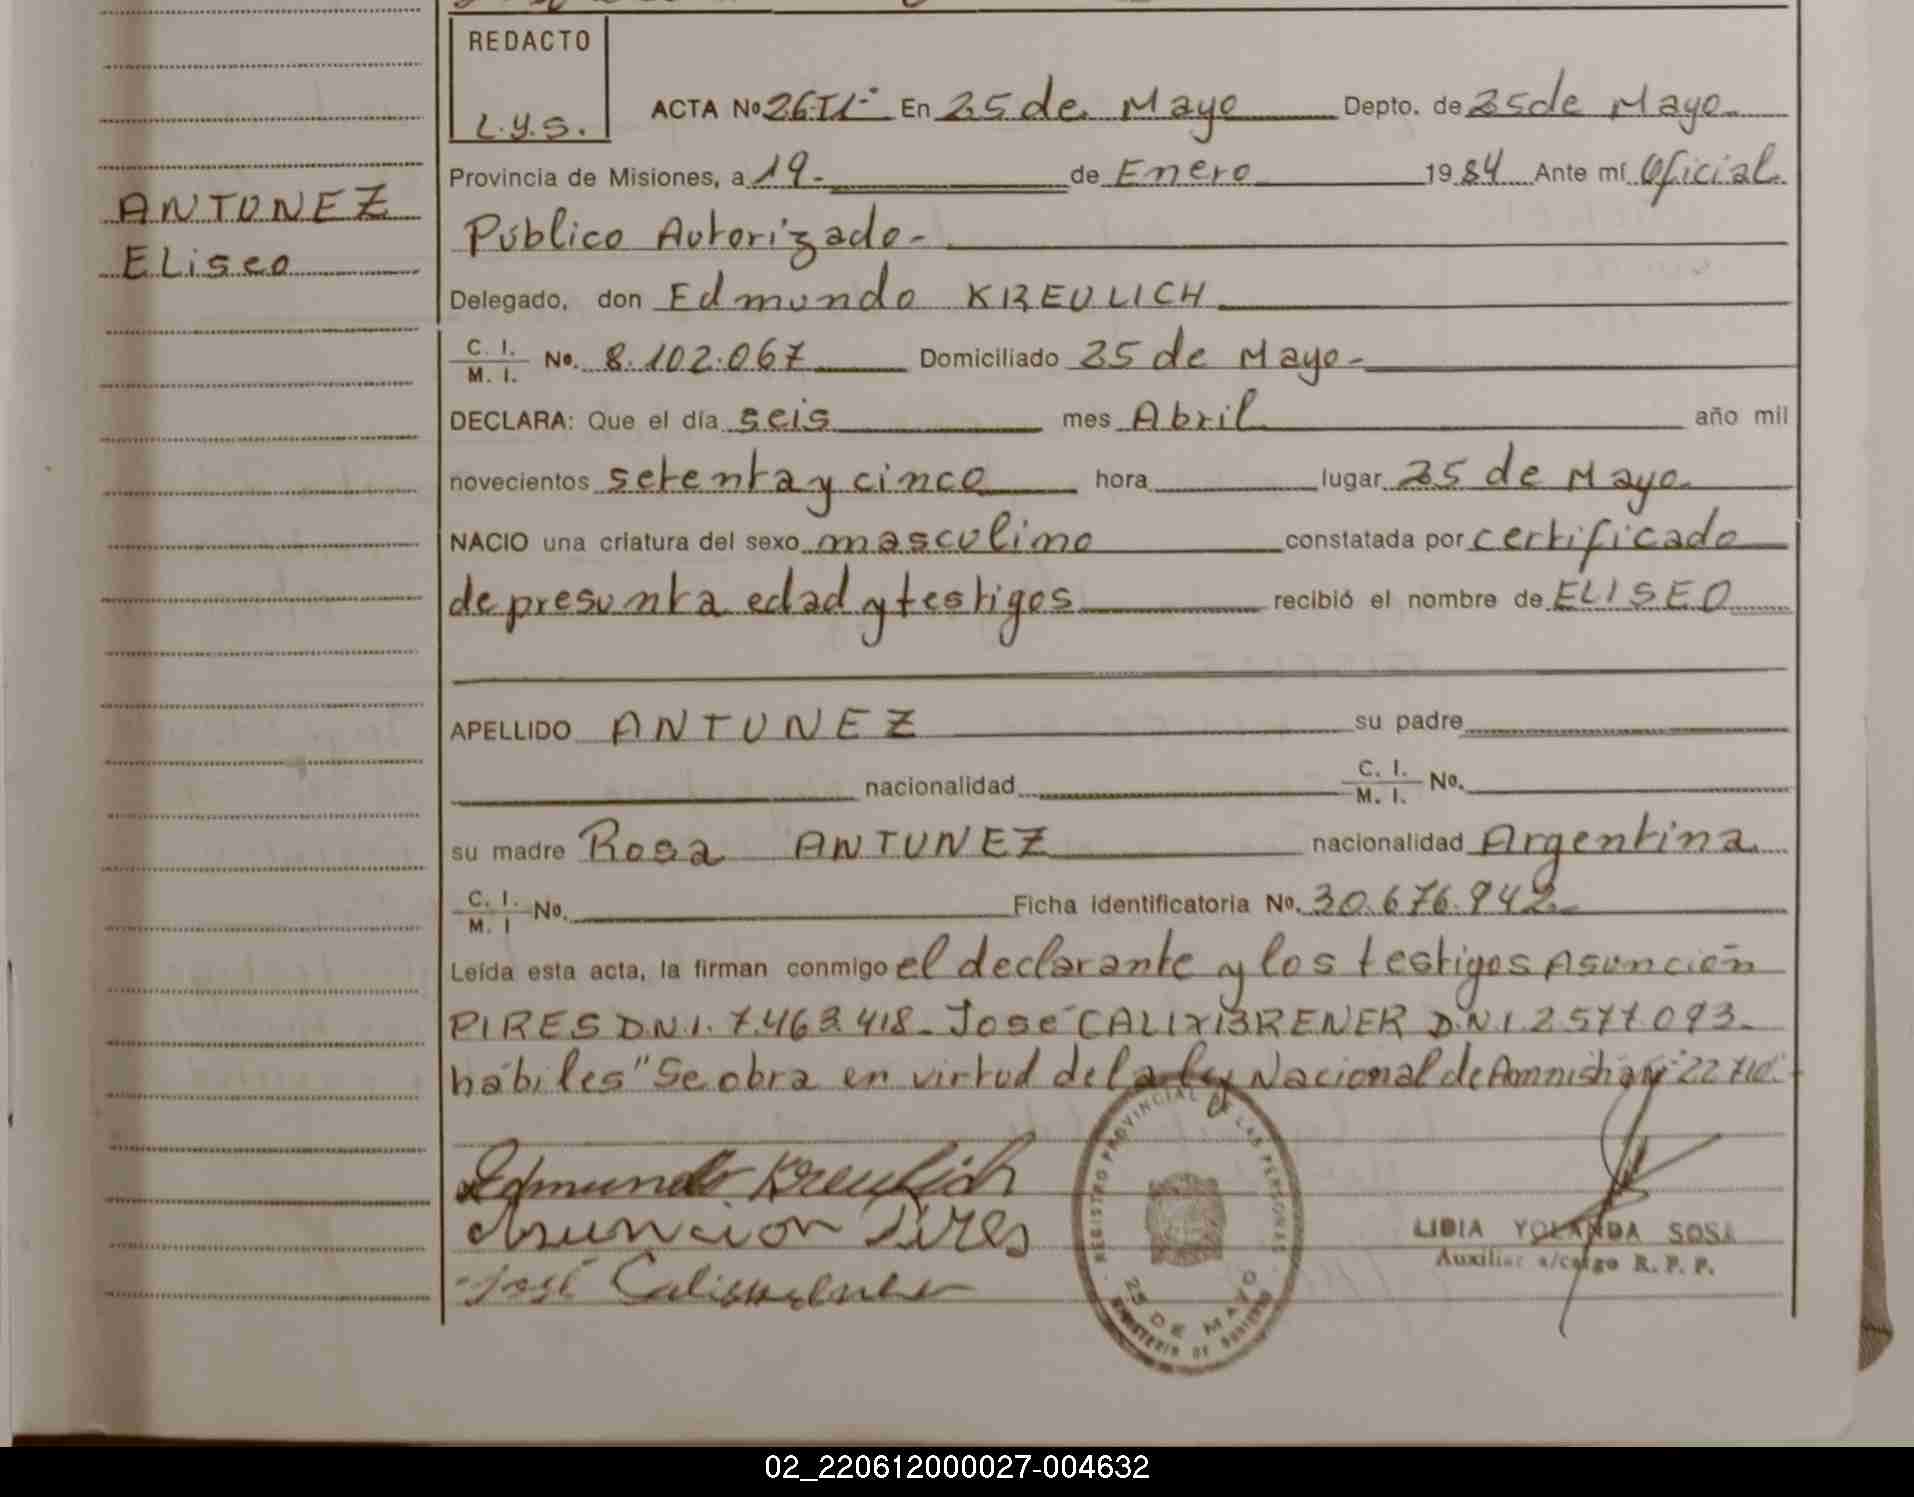 REDACTO
L.Y.S.
ACTA No 26 TI-" En 25 de Mayo Depto. de 25 de Mayo
Provincia de Misiones, a 19- de Enero 1984 Ante mí Oficial
Público Autorizado-
ANTUNEZ
ELiseo
Delegado, don Edmundo KREULICH
C. I. / M. I. No. 8.102.067 Domiciliado 25 de Mayo-
DECLARA: Que el día seis mes Abril año mil
novecientos setenta y cinco hora lugar 25 de Mayo
NACIO una criatura del sexo masculino constatada por certificado
de presunta edad y testigos recibió el nombre de ELISEO
APELLIDO ANTUNEZ su padre
nacionalidad C. I. / M. I. No.
su madre Rosa ANTUNEZ nacionalidad Argentina
C. I. / M. I No. Ficha identificatoria No. 30.676.942
Leída esta acta, la firman conmigo el declarante y los testigos Asunción
PIRES D.N.I. 7.463.418- José CALIXBRENER D.N.I. 2.577.093-
hábiles "Se obra en virtud de la ley Nacional de Amnistia Nº 22.710.
Edmundo Kreulich
Asuncion Pires
José
REGISTRO PROVINCIAL DE LAS PERSONAS
25 DE MAYO
MINISTERIO DE GOBIERNO
LIDIA YOLANDA SOSA
Auxiliar a/cargo R. P. P.
02_220612000027-004632